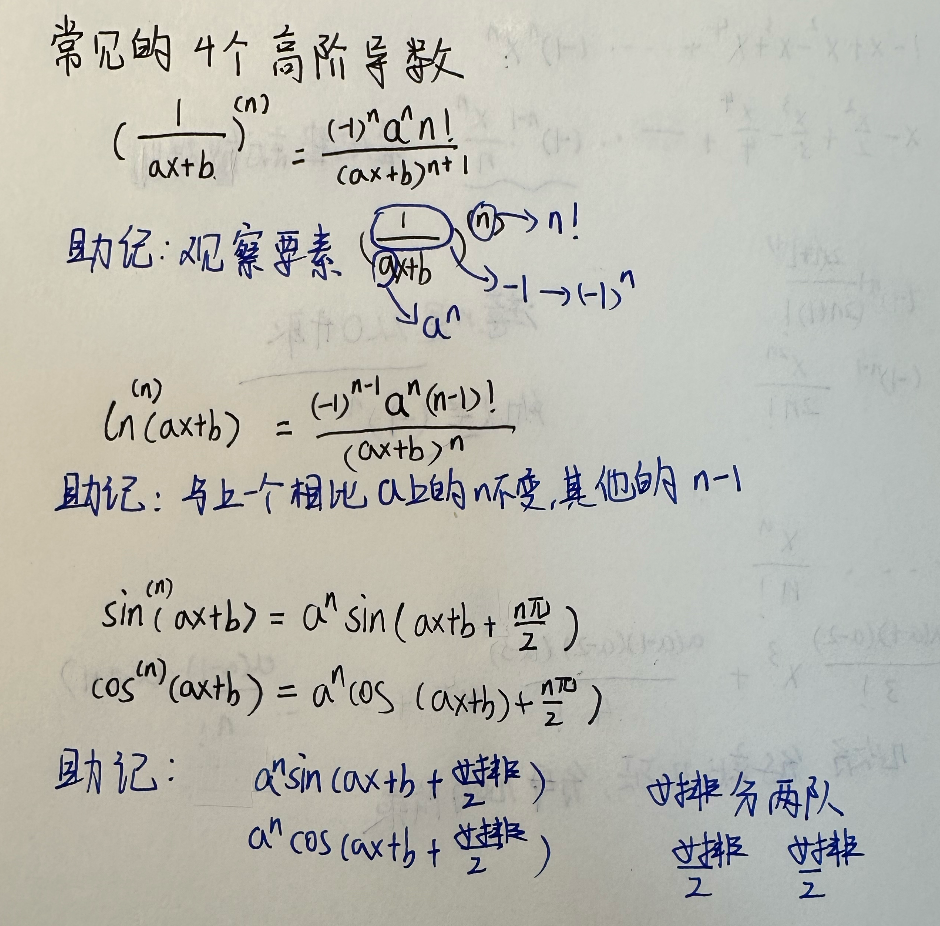 常见的 4个 高阶导数
(1/(ax+b))^(n) = (-1)^n a^n n! / (ax+b)^{n+1}
助记: 观察要素 (1/(ax+b)) (n) → n!
→ -1 → (-1)^n
→ a^n
ln^(n)(ax+b) = (-1)^{n-1} a^n (n-1)! / (ax+b)^n
助记: 与上一个相比 a上的n不变,其他的 n-1
sin^(n)(ax+b) = a^n sin(ax+b + nπ/2)
cos^(n)(ax+b) = a^n cos (ax+b)+ nπ/2)
助记: a^n sin(ax+b + 女排/2) 女排分两队
a^n cos(ax+b + 女排/2) 女排/2 女排/2